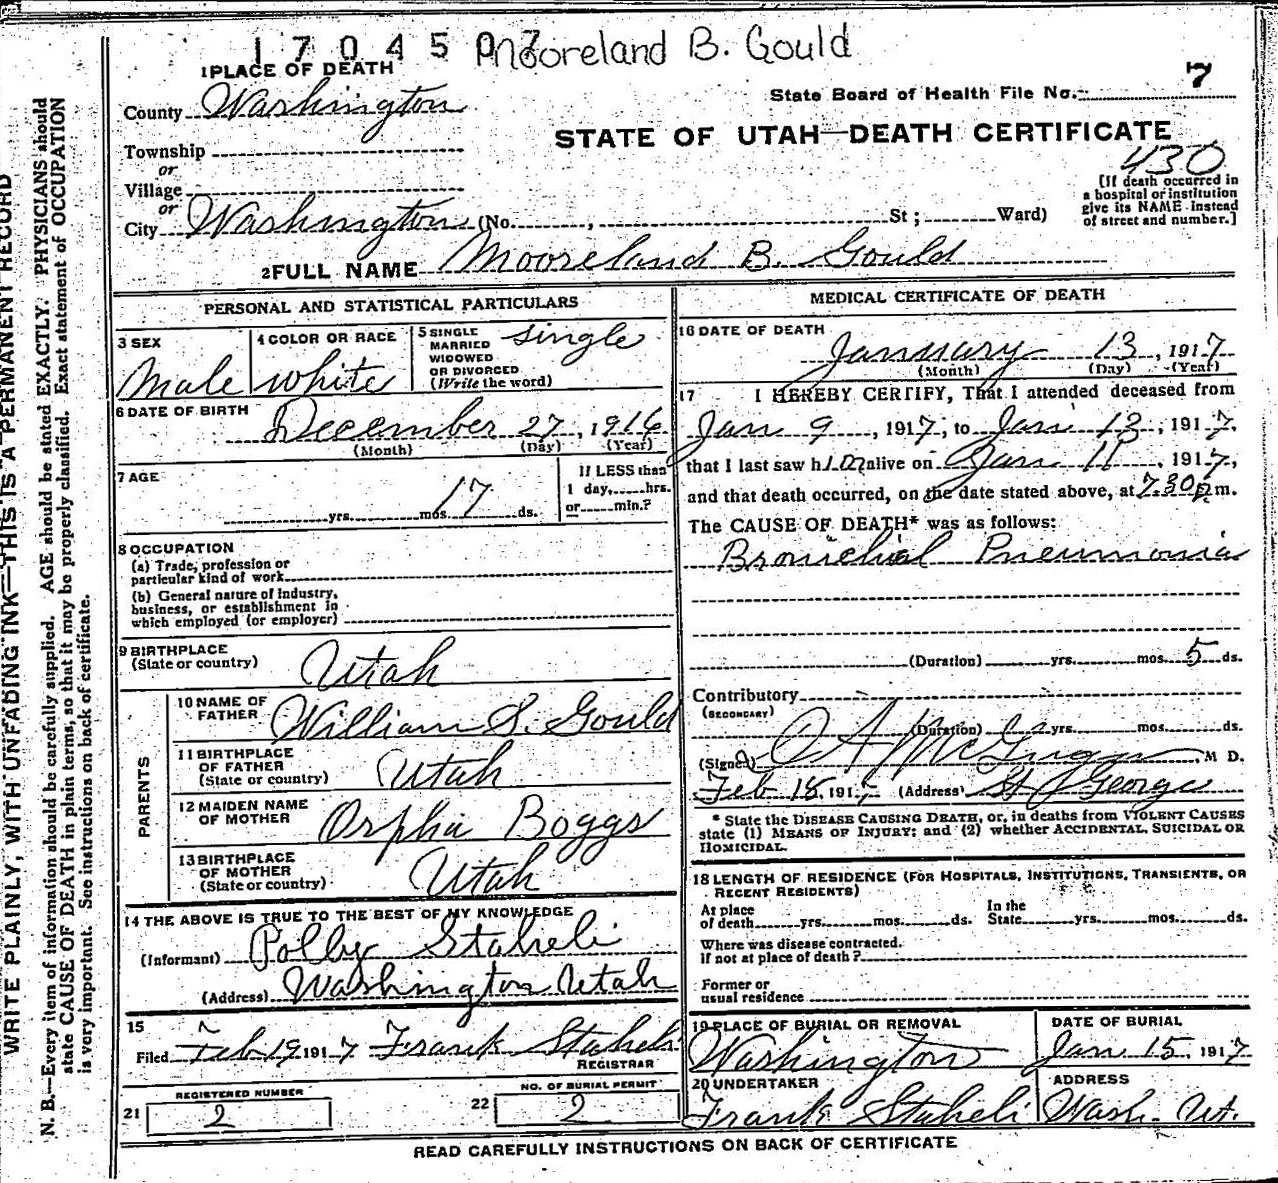 1704507 Mooreland B. Gould
1 PLACE OF DEATH
County Washington
State Board of Health File No. 7
Township
or
Village
or
City Washington (No. , St ; Ward)
STATE OF UTAH—DEATH CERTIFICATE
430
[If death occurred in
a hospital or institution
give its NAME instead
of street and number.]
2 FULL NAME Mooreland B. Gould
PERSONAL AND STATISTICAL PARTICULARS
3 SEX
Male
4 COLOR OR RACE
white
5 SINGLE
MARRIED
WIDOWED
OR DIVORCED
(Write the word)
single
6 DATE OF BIRTH December 27, 1916
(Month) (Day) (Year)
7 AGE
yrs. mos. 17 ds.
If LESS than
1 day, hrs.
or min.?
8 OCCUPATION
(a) Trade, profession or
particular kind of work
(b) General nature of industry,
business, or establishment in
which employed (or employer)
9 BIRTHPLACE
(State or country) Utah
PARENTS
10 NAME OF
FATHER William S. Gould
11 BIRTHPLACE
OF FATHER
(State or country) Utah
12 MAIDEN NAME
OF MOTHER Orpha Boggs
13 BIRTHPLACE
OF MOTHER
(State or country) Utah
14 THE ABOVE IS TRUE TO THE BEST OF MY KNOWLEDGE
(Informant) Polly Staheli
(Address) Washington Utah
15
Filed Feb 19 1917 Frank Staheli
REGISTRAR
REGISTERED NUMBER
21 2
NO. OF BURIAL PERMIT
22 2
MEDICAL CERTIFICATE OF DEATH
16 DATE OF DEATH
January 13, 1917
(Month) (Day) (Year)
17 I HEREBY CERTIFY, That I attended deceased from
Jan 9, 1917, to Jan 13, 1917,
that I last saw him alive on Jan 11, 1917,
and that death occurred, on the date stated above, at 7.30 p.m.
The CAUSE OF DEATH* was as follows:
Bronchial Pneumonia
(Duration) yrs. mos. 5 ds.
Contributory
(SECONDARY)
(Duration) yrs. mos. ds.
(Signed) M D.
Feb 18, 1917 (Address) St George
* State the DISEASE CAUSING DEATH, or, in deaths from VIOLENT CAUSES
state (1) MEANS OF INJURY; and (2) whether ACCIDENTAL, SUICIDAL OR
HOMICIDAL.
18 LENGTH OF RESIDENCE (FOR HOSPITALS, INSTITUTIONS, TRANSIENTS, OR
RECENT RESIDENTS)
At place
of death yrs. mos. ds.
In the
State yrs. mos. ds.
Where was disease contracted.
if not at place of death ?
Former or
usual residence
19 PLACE OF BURIAL OR REMOVAL
Washington
DATE OF BURIAL
Jan 15, 1917
20 UNDERTAKER
Frank Staheli
ADDRESS
Wash. Ut.
READ CAREFULLY INSTRUCTIONS ON BACK OF CERTIFICATE
WRITE PLAINLY, WITH UNFADING INK—THIS IS A PERMANENT RECORD
N. B.—Every item of information should be carefully supplied. AGE should be stated EXACTLY. PHYSICIANS should
state CAUSE OF DEATH in plain terms, so that it may be properly classified. Exact statement of OCCUPATION
is very important. See instructions on back of certificate.